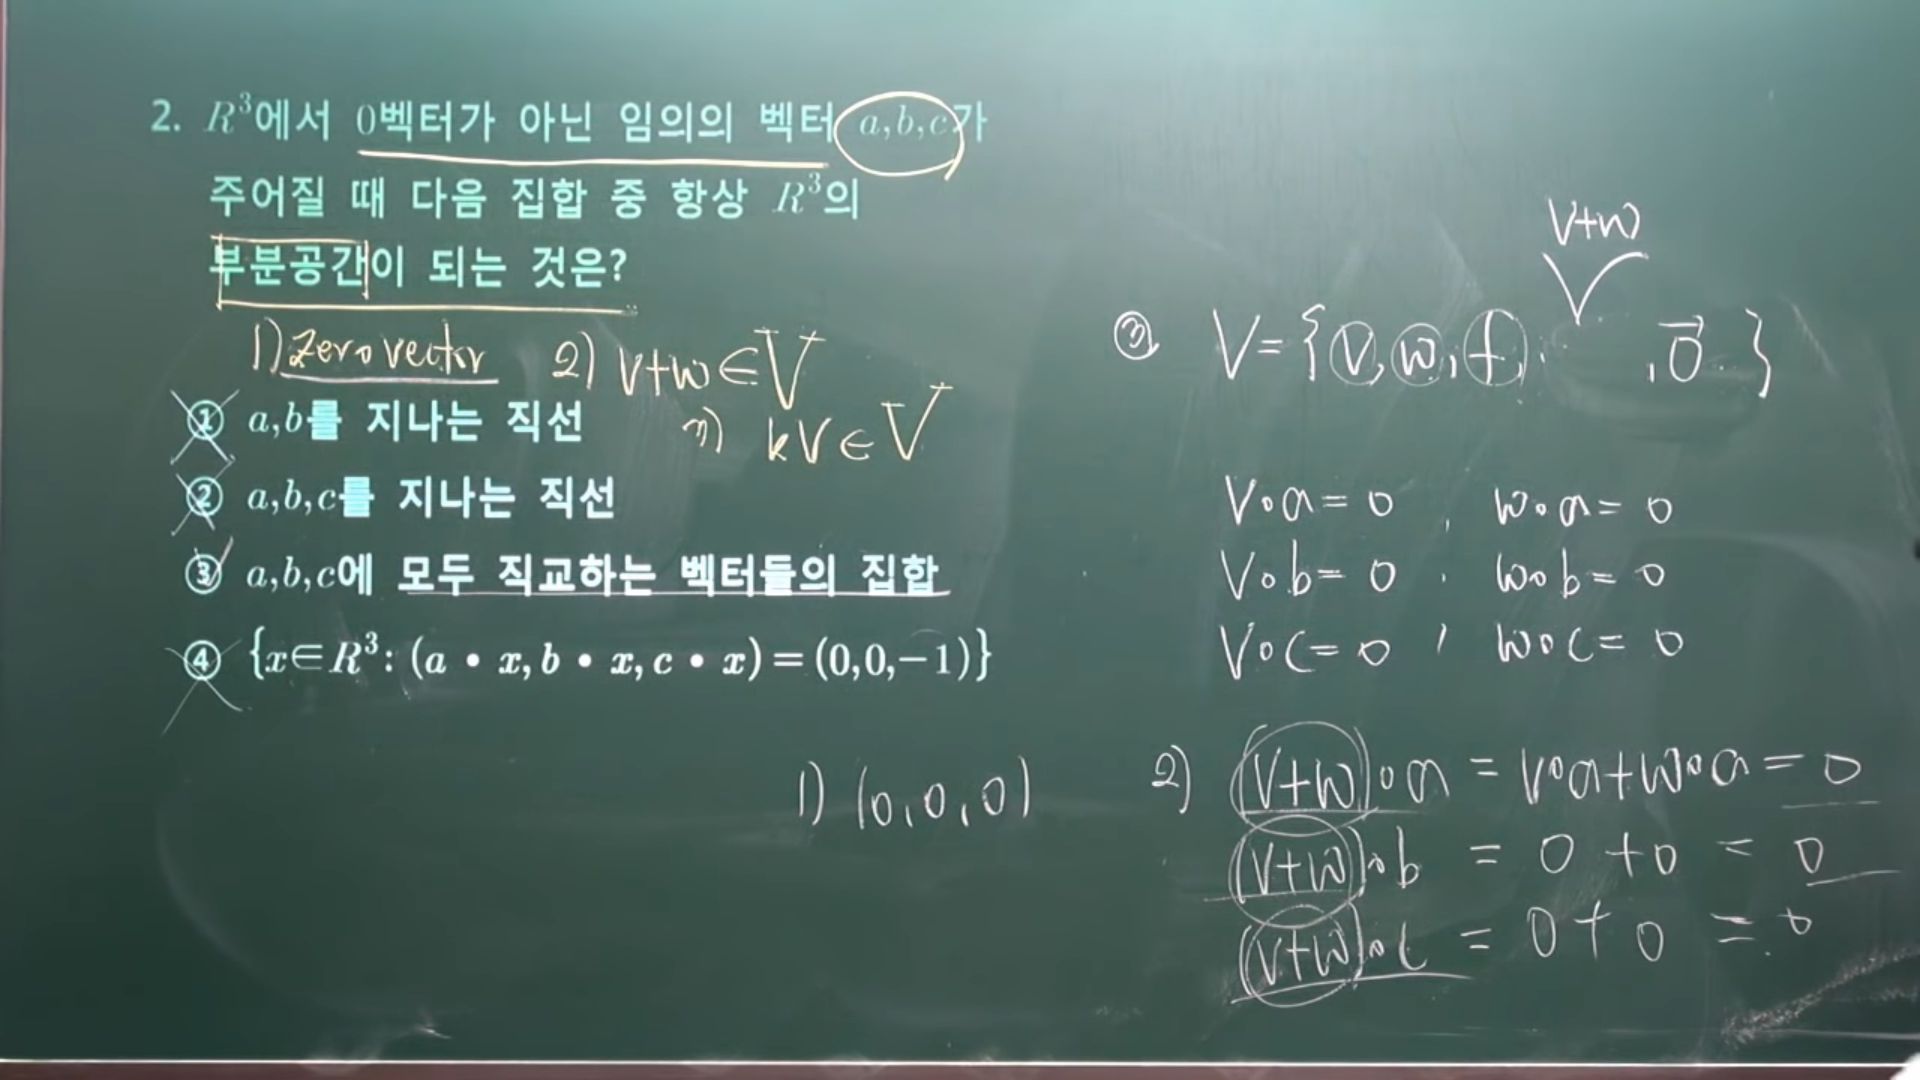 2. R³에서 0벡터가 아닌 임의의 벡터 a,b,c가
주어질 때 다음 집합 중 항상 R³의
부분공간이 되는 것은?
1) Zero vector 2) v+w∈V
3) kv∈V
① a,b를 지나는 직선
② a,b,c를 지나는 직선
③ a,b,c에 모두 직교하는 벡터들의 집합
④ {x∈R³: (a • x, b • x, c • x) = (0,0,−1)}
1) (0,0,0)
v+w
③ V={v, w, f, . , 0⃗ }
v∘a=0 , w∘a=0
v∘b=0 , w∘b=0
v∘c=0 , w∘c=0
2) (v+w)∘a = v∘a+w∘a = 0
(v+w)∘b = 0 + 0 = 0
(v+w)∘c = 0 + 0 = 0